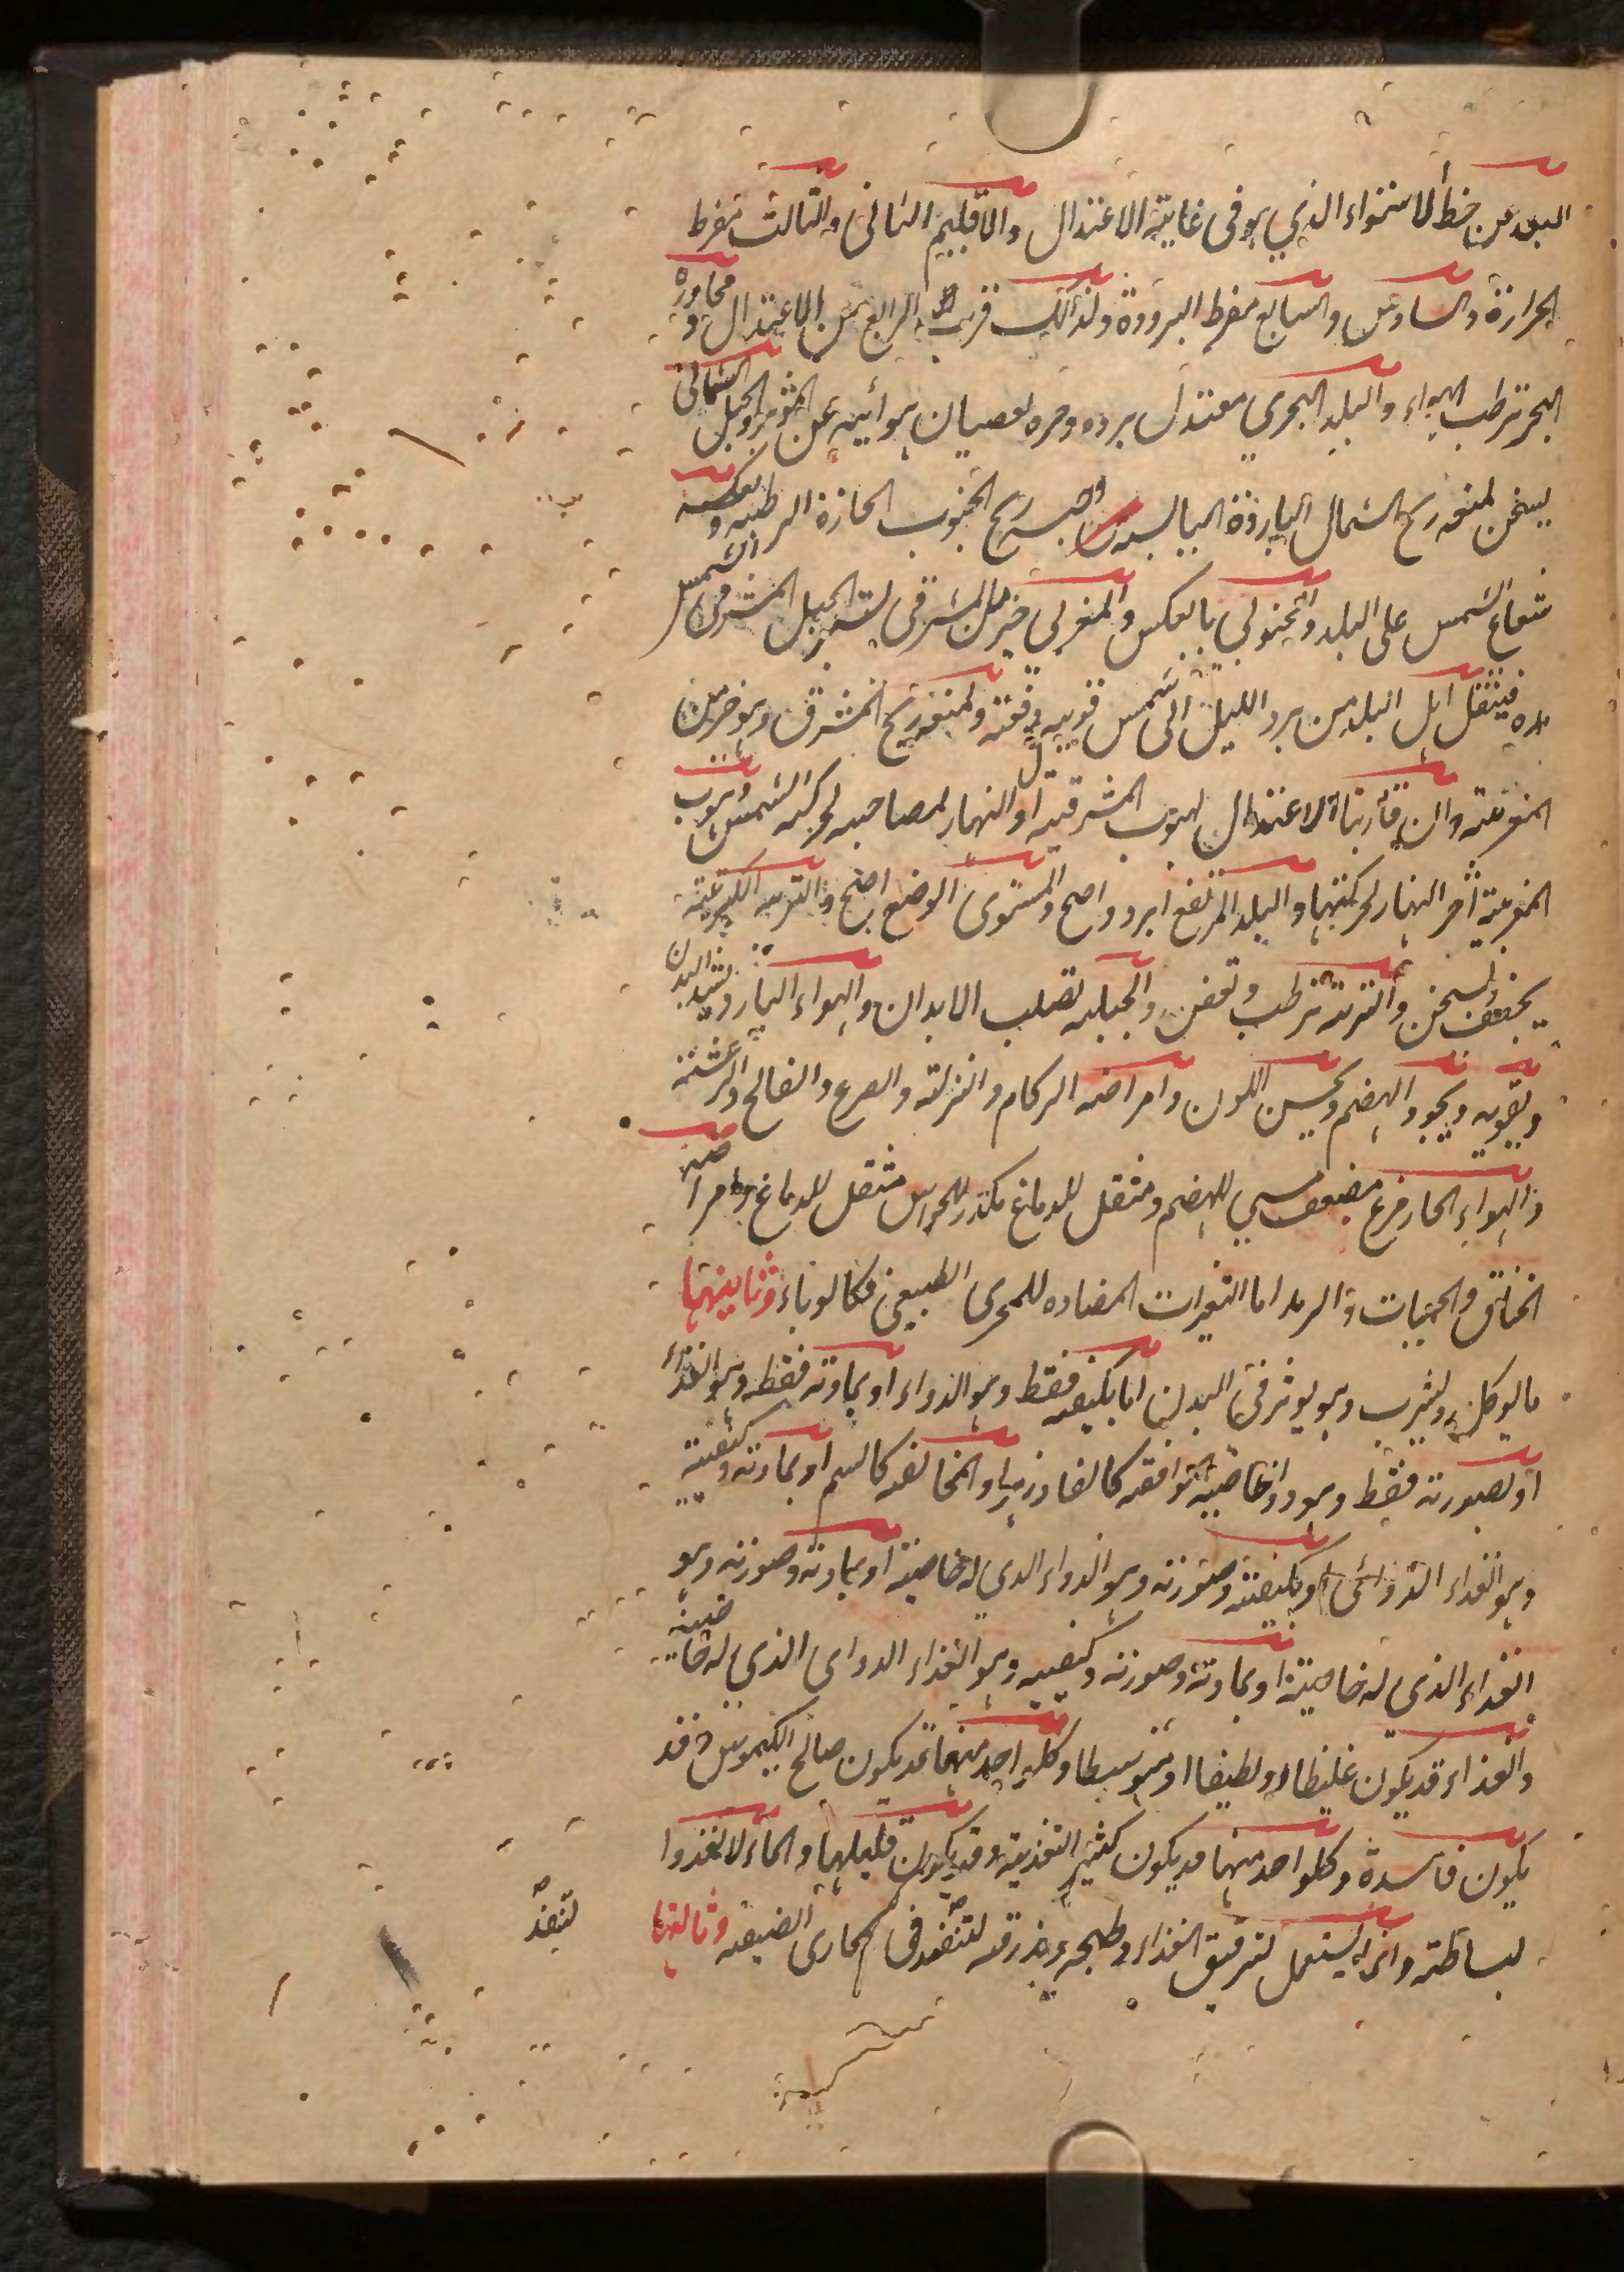 البعد عن خط الاستواء الذي هو في غاية الاعتدال والاقليم الثاني والثالث مفرط
الحرارة والسادس والسابع مفرط البرودة ولذلك قرب الرابع من الاعتدال و مجاورة
البحر ترطب الهواء والبلد البحري معتدل برده وحره لعصيان هوائيه عن المؤثر والجبل الشمالي
يسخن لمنعه ريح الشمال الباردة اليابسة وحبسه ريح الجنوب الحارة الرطبه و بعكسه
شعاع الشمس على البلد والجنوبي بالعكس والمغربي خير من المشرقي لستر الجبل المشرقي الشمس
فينتقل اهل البلد من برد الليل الى شمس قويه دفعة ولمنعه ريح المشرق وهو خير من
المغربية وان قاربتا الاعتدال لهبوب المشرقية اول النهار لمصاحبه لحركة الشمس وهبوب
المغربية آخر النهار لحركتها والبلد المرتفع ابرد واصح والمستوى الوضع اصح والتربه الكبريتية
يجفف يسخن والنزه ترطب وتعفن والجبليه تصلب الابدان والهواء البارد يشد البدن
ويقويه ويجود الهضم ويحسن اللون وامراضه الزكام والنزلة والصرع والفالج والرعشة
والهواء الحار مرخ مضعف مسيء للهضم ومثقل للدماغ مكدر للحواس مثقل للدماغ وامراضه
الخناق والحميات والرمد اما التغيرات المضاده للمجرى الطبيعي فكالوباء وثانيتها
ما يوكل ويشرب وهو يوثر في البدن اما بكيفيه فقط وهو الدواء او بمادته فقط وهو الغذاء
او بصورته فقط وهو ذو الخاصية الموافقه كالفادزهر او المخالفه كالسم او بمادته وكيفيته
وهو الغذاء الدوائى او بكيفيته وصورته وهو الدواء الذي له خاصية او بمادته وصورته وهو
الغذاء الذى له خاصية او بمادته وصورته وكيفيته وهو الغذاء الدوائي الذي له خاصية
والغذاء قد يكون غليظا او لطيفا او متوسطا وكل واحد منها قد يكون صالح الكيموس وقد
يكون فاسدة وكل واحد منها قد يكون كثير التغذية وقد يكون قليلها والماء لا يغذوا
لبساطته وانما يستعمل لترقيق الغذاء وطبخه وبذرقته لتنفذ فى المجارى الضيقه وثالثها
لتنفذ